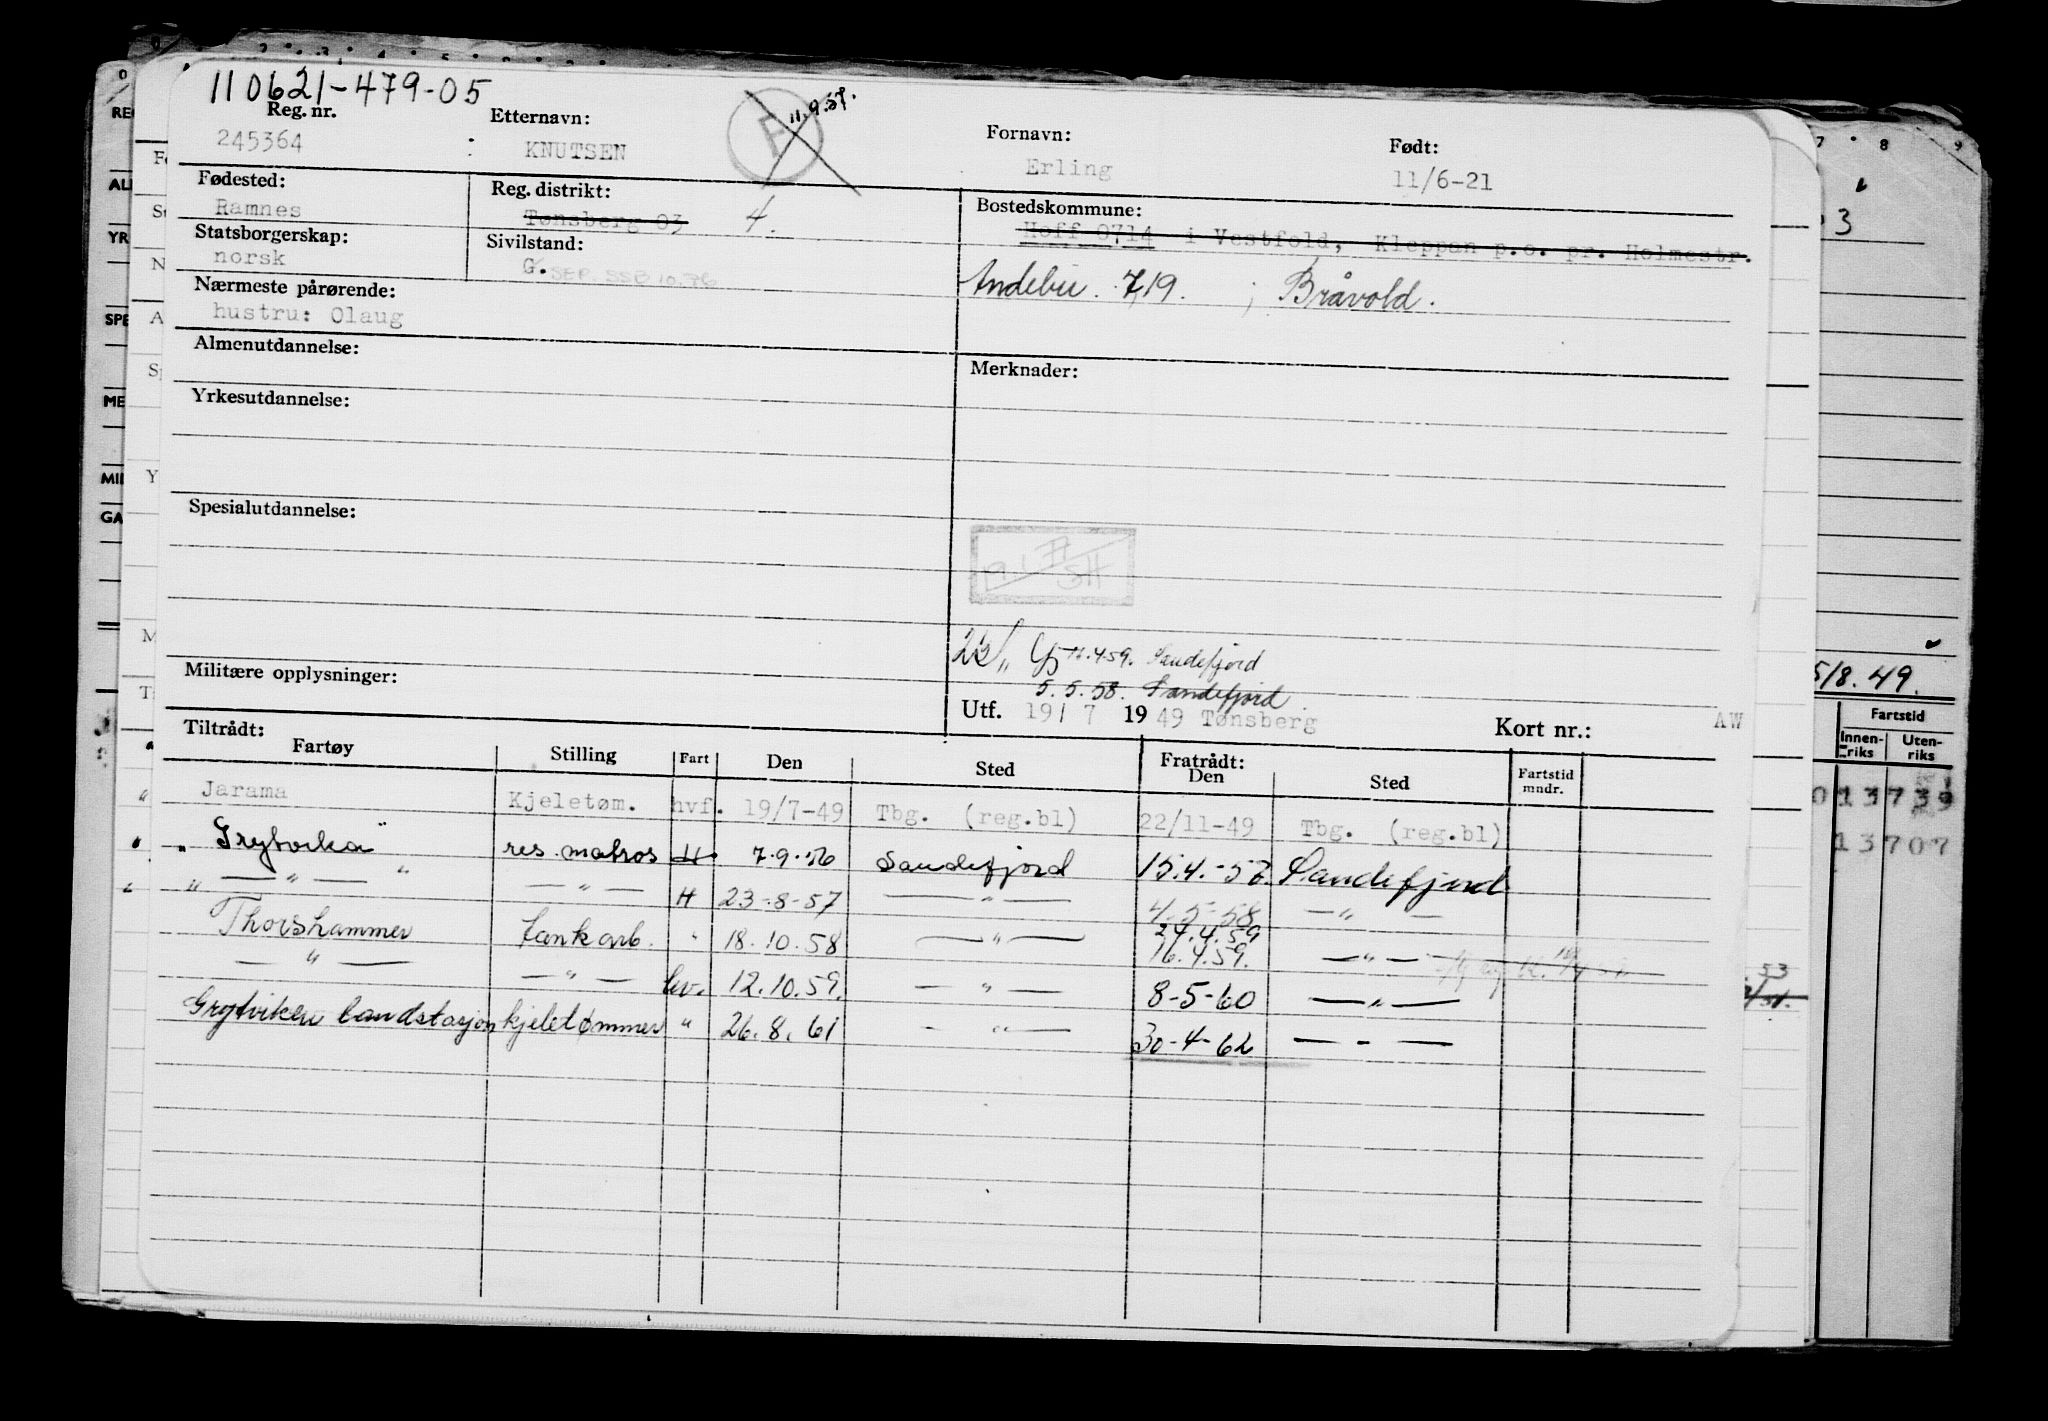 110621-479-05
Reg. nr. Etternavn: Fornavn: Født:
245364 KNUTSEN Erling 11/6-21
11.9.57.
Fødested: Reg. distrikt: Bostedskommune:
Ramnes Tønsberg 03 4. Hoff 0714 i Vestfold, Kleppan p.o. pr. Holmestr.
Statsborgerskap: Sivilstand:
norsk G. SEP. SSB 10.76
Andebu 719. ; Bråvold.
Nærmeste pårørende:
hustru: Olaug
Almenutdannelse: Merknader:
Yrkesutdannelse:
Spesialutdannelse:
16.4.59. Sandefjord
Militære opplysninger: 5.5.58. Sandefjord.
Utf. 19/7 1949 Tønsberg Kort nr.: AW
Tiltrådt: Fratrådt:
Fartøy Stilling Fart Den Sted Den Sted Fartstid mndr.
Jarama Kjeletøm. hvf. 19/7-49 Tbg. (reg.bl) 22/11-49 Tbg. (reg.bl)
" Grytvika" res. matros H 7.9.56 Sandefjord 15.4.-57. Sandefjord
" — " — " — " — H 23-8-57 — " — 4-5-58 — " —
Thorshammer tankarb. " 18.10.58 — " — 24.4.59 16.4.59. — " —
— " — — " — hv. 12.10.59. — " — 8-5-60 — " —
Grytviken landstasjon kjeletømmer " 26.8.61 — " — 30-4-62 — - —
3
5/8.49.
Fartstid
Innen-riks Uten-riks
13707
53